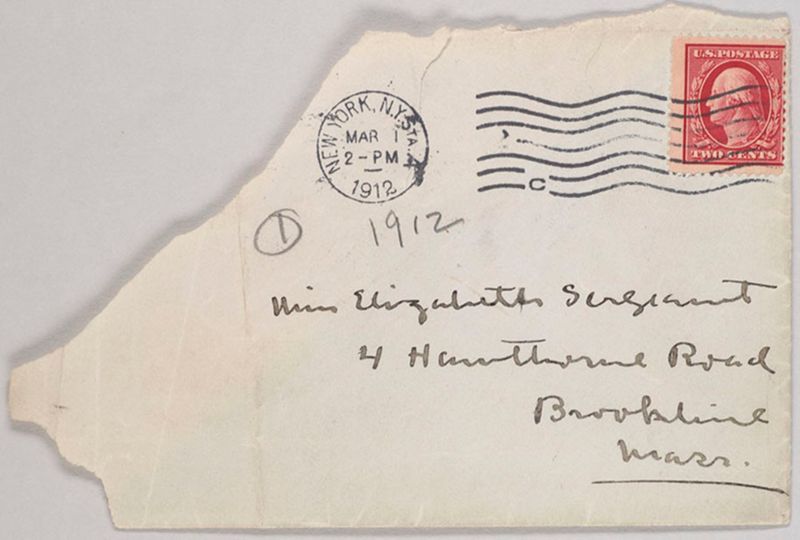 U.S. POSTAGE
TWO CENTS
NEW YORK, N.Y. STA. 
MAR 1
2-PM
1912
C
1 1912
Miss Elizabeth Sergeant
4 Hawthorne Road
Brookline
Mass.